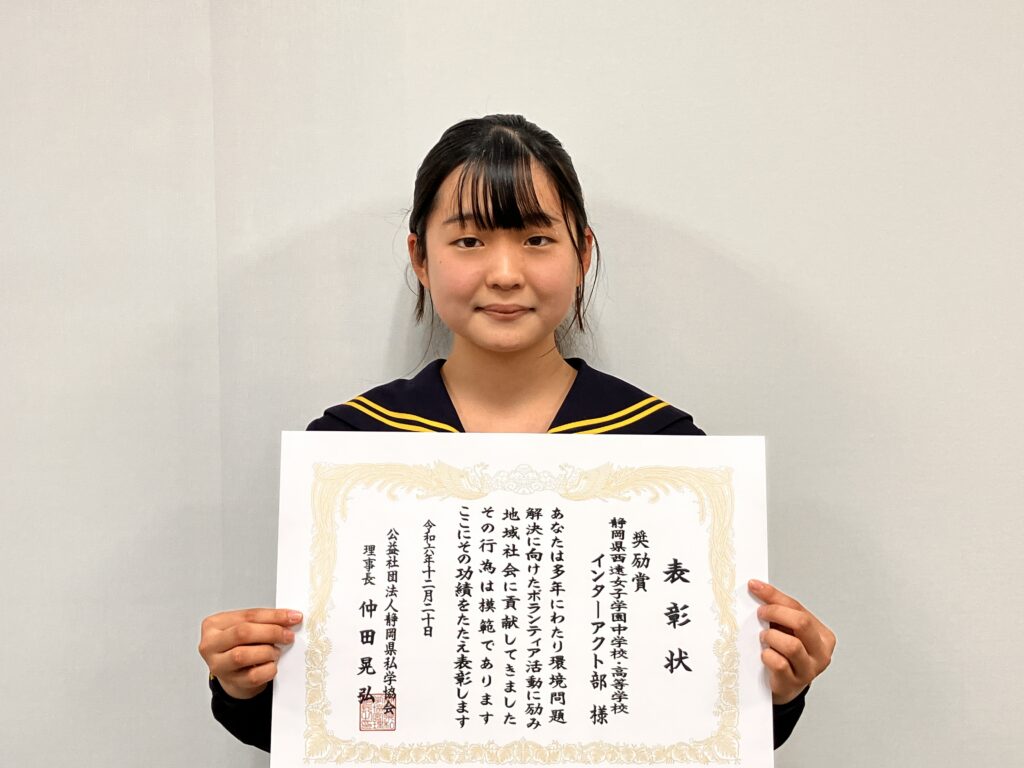 表彰状
奨励賞
静岡県西遠女子学園中学校・高等学校
インターアクト部 様
あなたは多年にわたり環境問題
解決に向けたボランティア活動に励み
地域社会に貢献してきました
その行為は模範であります
ここにその功績をたたえ表彰します
令和六年十二月二十日
公益社団法人静岡県私学協会
理事長 仲田晃弘